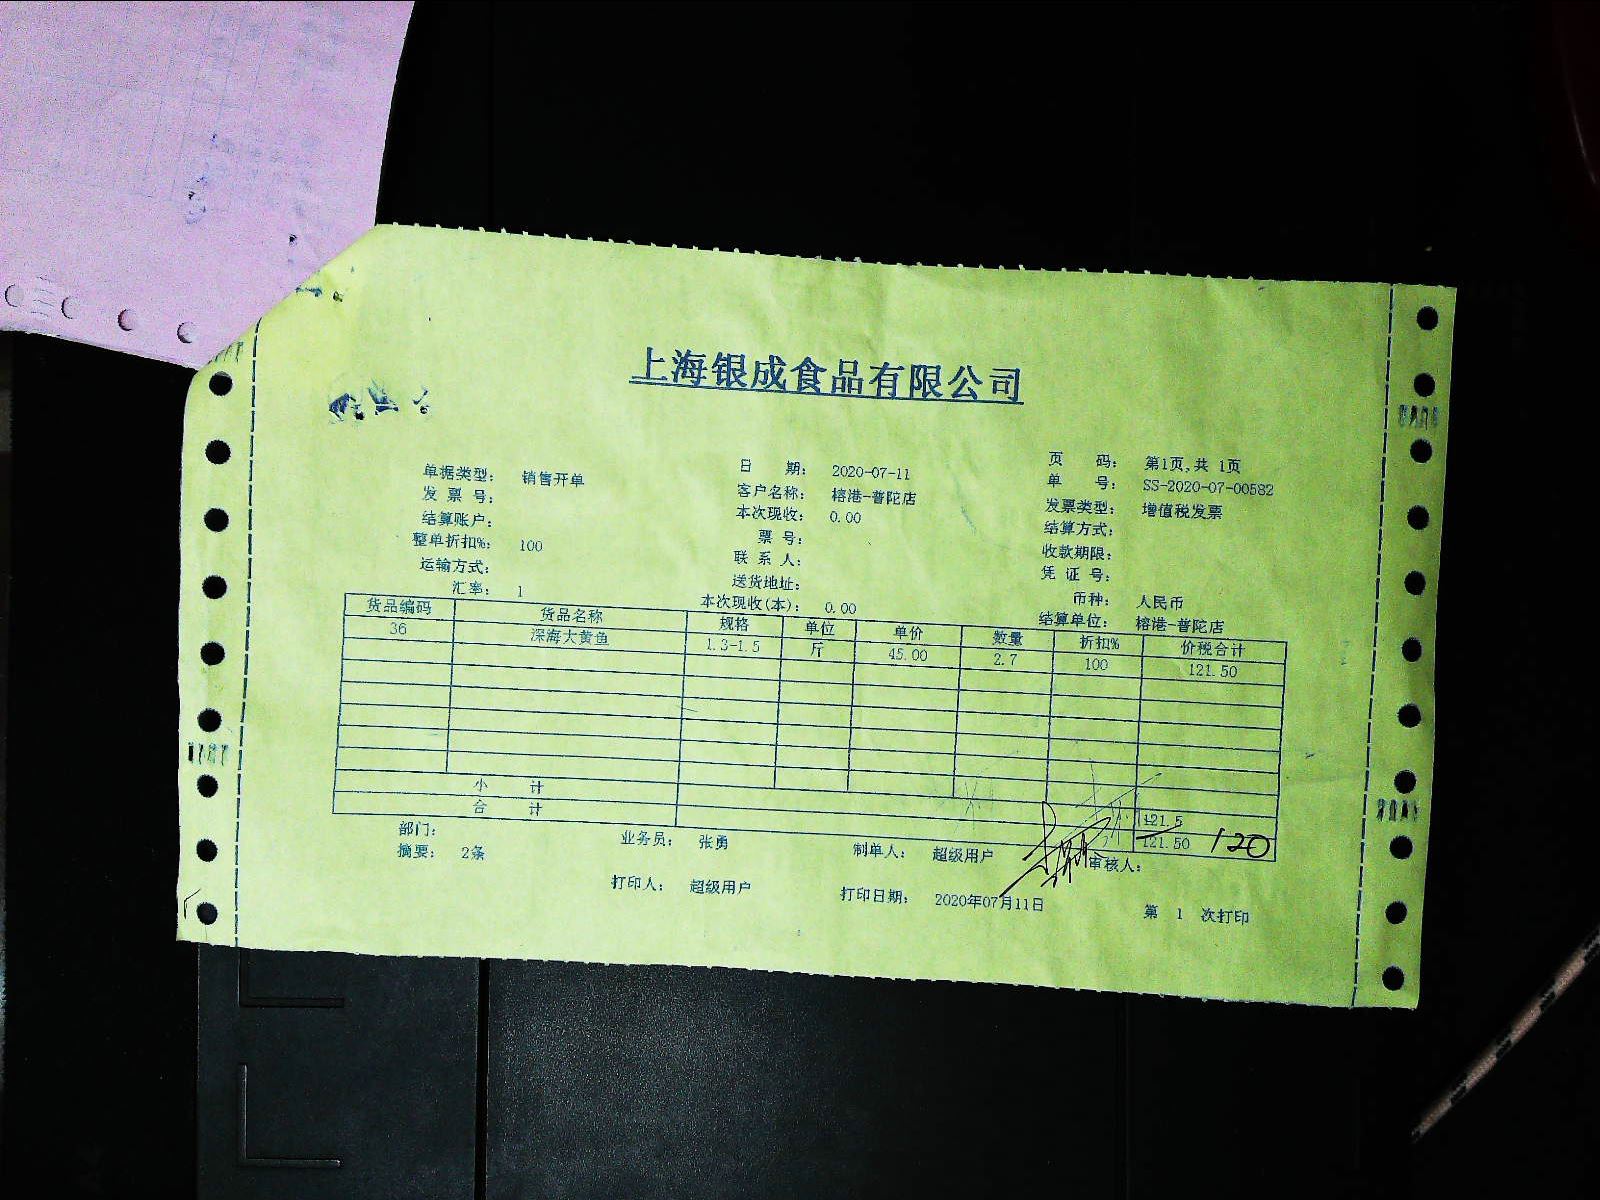 上海银成食品有限公司
单据类型： 销售开单 日 期： 2020-07-11 页 码： 第1页,共 1页
发 票 号： 客户名称： 榕港-普陀店 单 号： SS-2020-07-00582
结算账户： 本次现收： 0.00 发票类型： 增值税发票
整单折扣%： 100 票 号： 结算方式：
运输方式： 联 系 人： 收款期限：
汇率： 1 送货地址： 凭 证 号：
本次现收(本)： 0.00 币种： 人民币
结算单位： 榕港-普陀店
货品编码 货品名称 规格 单位 单价 数量 折扣% 价税合计
36 深海大黄鱼 1.3-1.5 斤 45.00 2.7 100 121.50
小 计 121.5
合 计 121.50 120
部门： 业务员： 张勇 制单人： 超级用户 审核人：
摘要： 2条
打印人： 超级用户 打印日期： 2020年07月11日 第 1 次打印